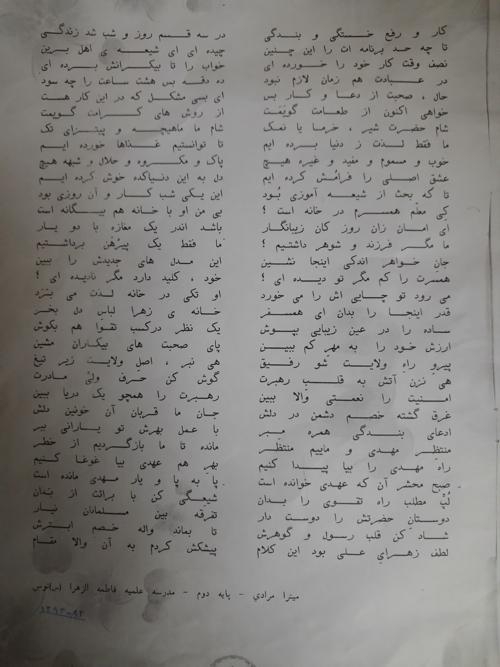 کار و رفع خستگی و بندگی در سه قسم روز و شب شد زندگی
تا چه حد برنامه ات را این چنین چیده ای ای شیعه ی اهل برین
نصف وقت کار خود را خورده ای خواب را تا بیکرانش برده ای
در عبادت هم زمان لازم نبود ده دقه بس هشت ساعت را چه سود
حال ، صحبت از دعا و کار بس ای بسی مشکل که در این کار هست
خواهی اکنون از طعامت گویَمَت از روش های کرامت گویمت
شام حضرت شیر ، خرما یا نمک شام ما ماهیچه و پیتزای تک
ما فقط لذت ز دنیا برده ایم تا توانستیم غذاها خورده ایم
خوب و مسموم و مفید و غیره هیچ پاک و مکروه و حلال و شبهه هیچ
عشق اصلی را فرامُش کرده ایم دل به این دنیاکده خوش کرده ایم
تا که بحث از شیعه آموزی بُود این یکی شب کار و آن روزی بود
کِی معلّم همسرم در خانه است ؟ بی من او با خانه هم بیگانه است
ای امان زان روز کان زیبانگار باشد اندر یک مغازه با دو یار
ما مگر فرزند و شوهر داشتیم ؟ ما فقط یک پیرُهن برداشتیم
جانِ خواهر اندکی اینجا نشین این مدل های جدیدش را ببین
همسرت را کم مگر تو دیده ای ؟ خود ، کلید دارد مگر نادیده ای ؟
می رود تو چایی اش را می خورد او تکی در خانه لذت می بَرَد
قدر اینجا را بدان ای همسفر خانه ی زهرا لباس دل بخر
ساده را در عین زیبایی بپوش یک نظر درکسب تقوا هم بکوش
ارزش خود را به مِهرِ کم ببین پای صحبت های بیکاران مشین
پیرو راه ولایت شو رفیق هی نبر ، اصل ولایت زیر تیغ
هی نزن آتش به قلب رهبرت گوش کن حرف ولیّ مادرت
امنیت را نعمتی والا ببین رهبرت را همچو یک دریا ببین
غرق گشته خصم دشمن در دلش جان ما قربان آن خونین دلش
ادعای بندگی همره مبر با عمل بهرش تو یارانی ببر
منتظر مهدی و ماییم منتظَر مانده تا ما بازگردیم از خطر
راه مهدی را بیا پیدا کنیم بهر هم عهدی بیا غوغا کنیم
صبح محشر آن که عهدی خوانده است پا به پا و یار مهدی مانده است
لُبّ مطلب راه تقوی را بدان شیعگی کن با برائت از بَدان
دوستان حضرتش را دوست دار تفرقه بین مسلمانان نیار
شاد کن قلب رسول و گوهرش تا بماند واله خصم ابترش
لطف زهرای علی بود این کلام پیشکش کردم به آن والا مقام
میترا مرادی - پایه دوم - مدرسه علمیه فاطمه الزهرا (س)توس